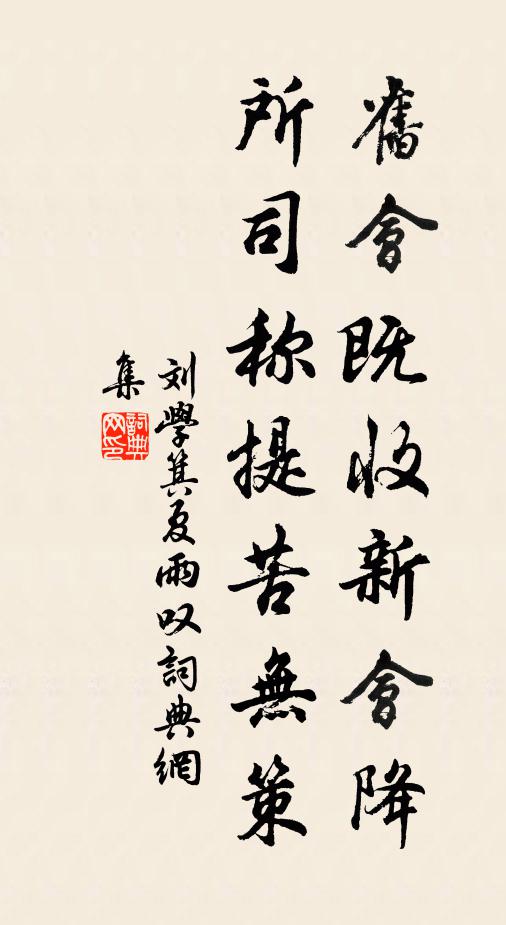 舊會既收新會降
所司称提苦無策
刘學箕夏雨叹詞典網
集
詞典網印